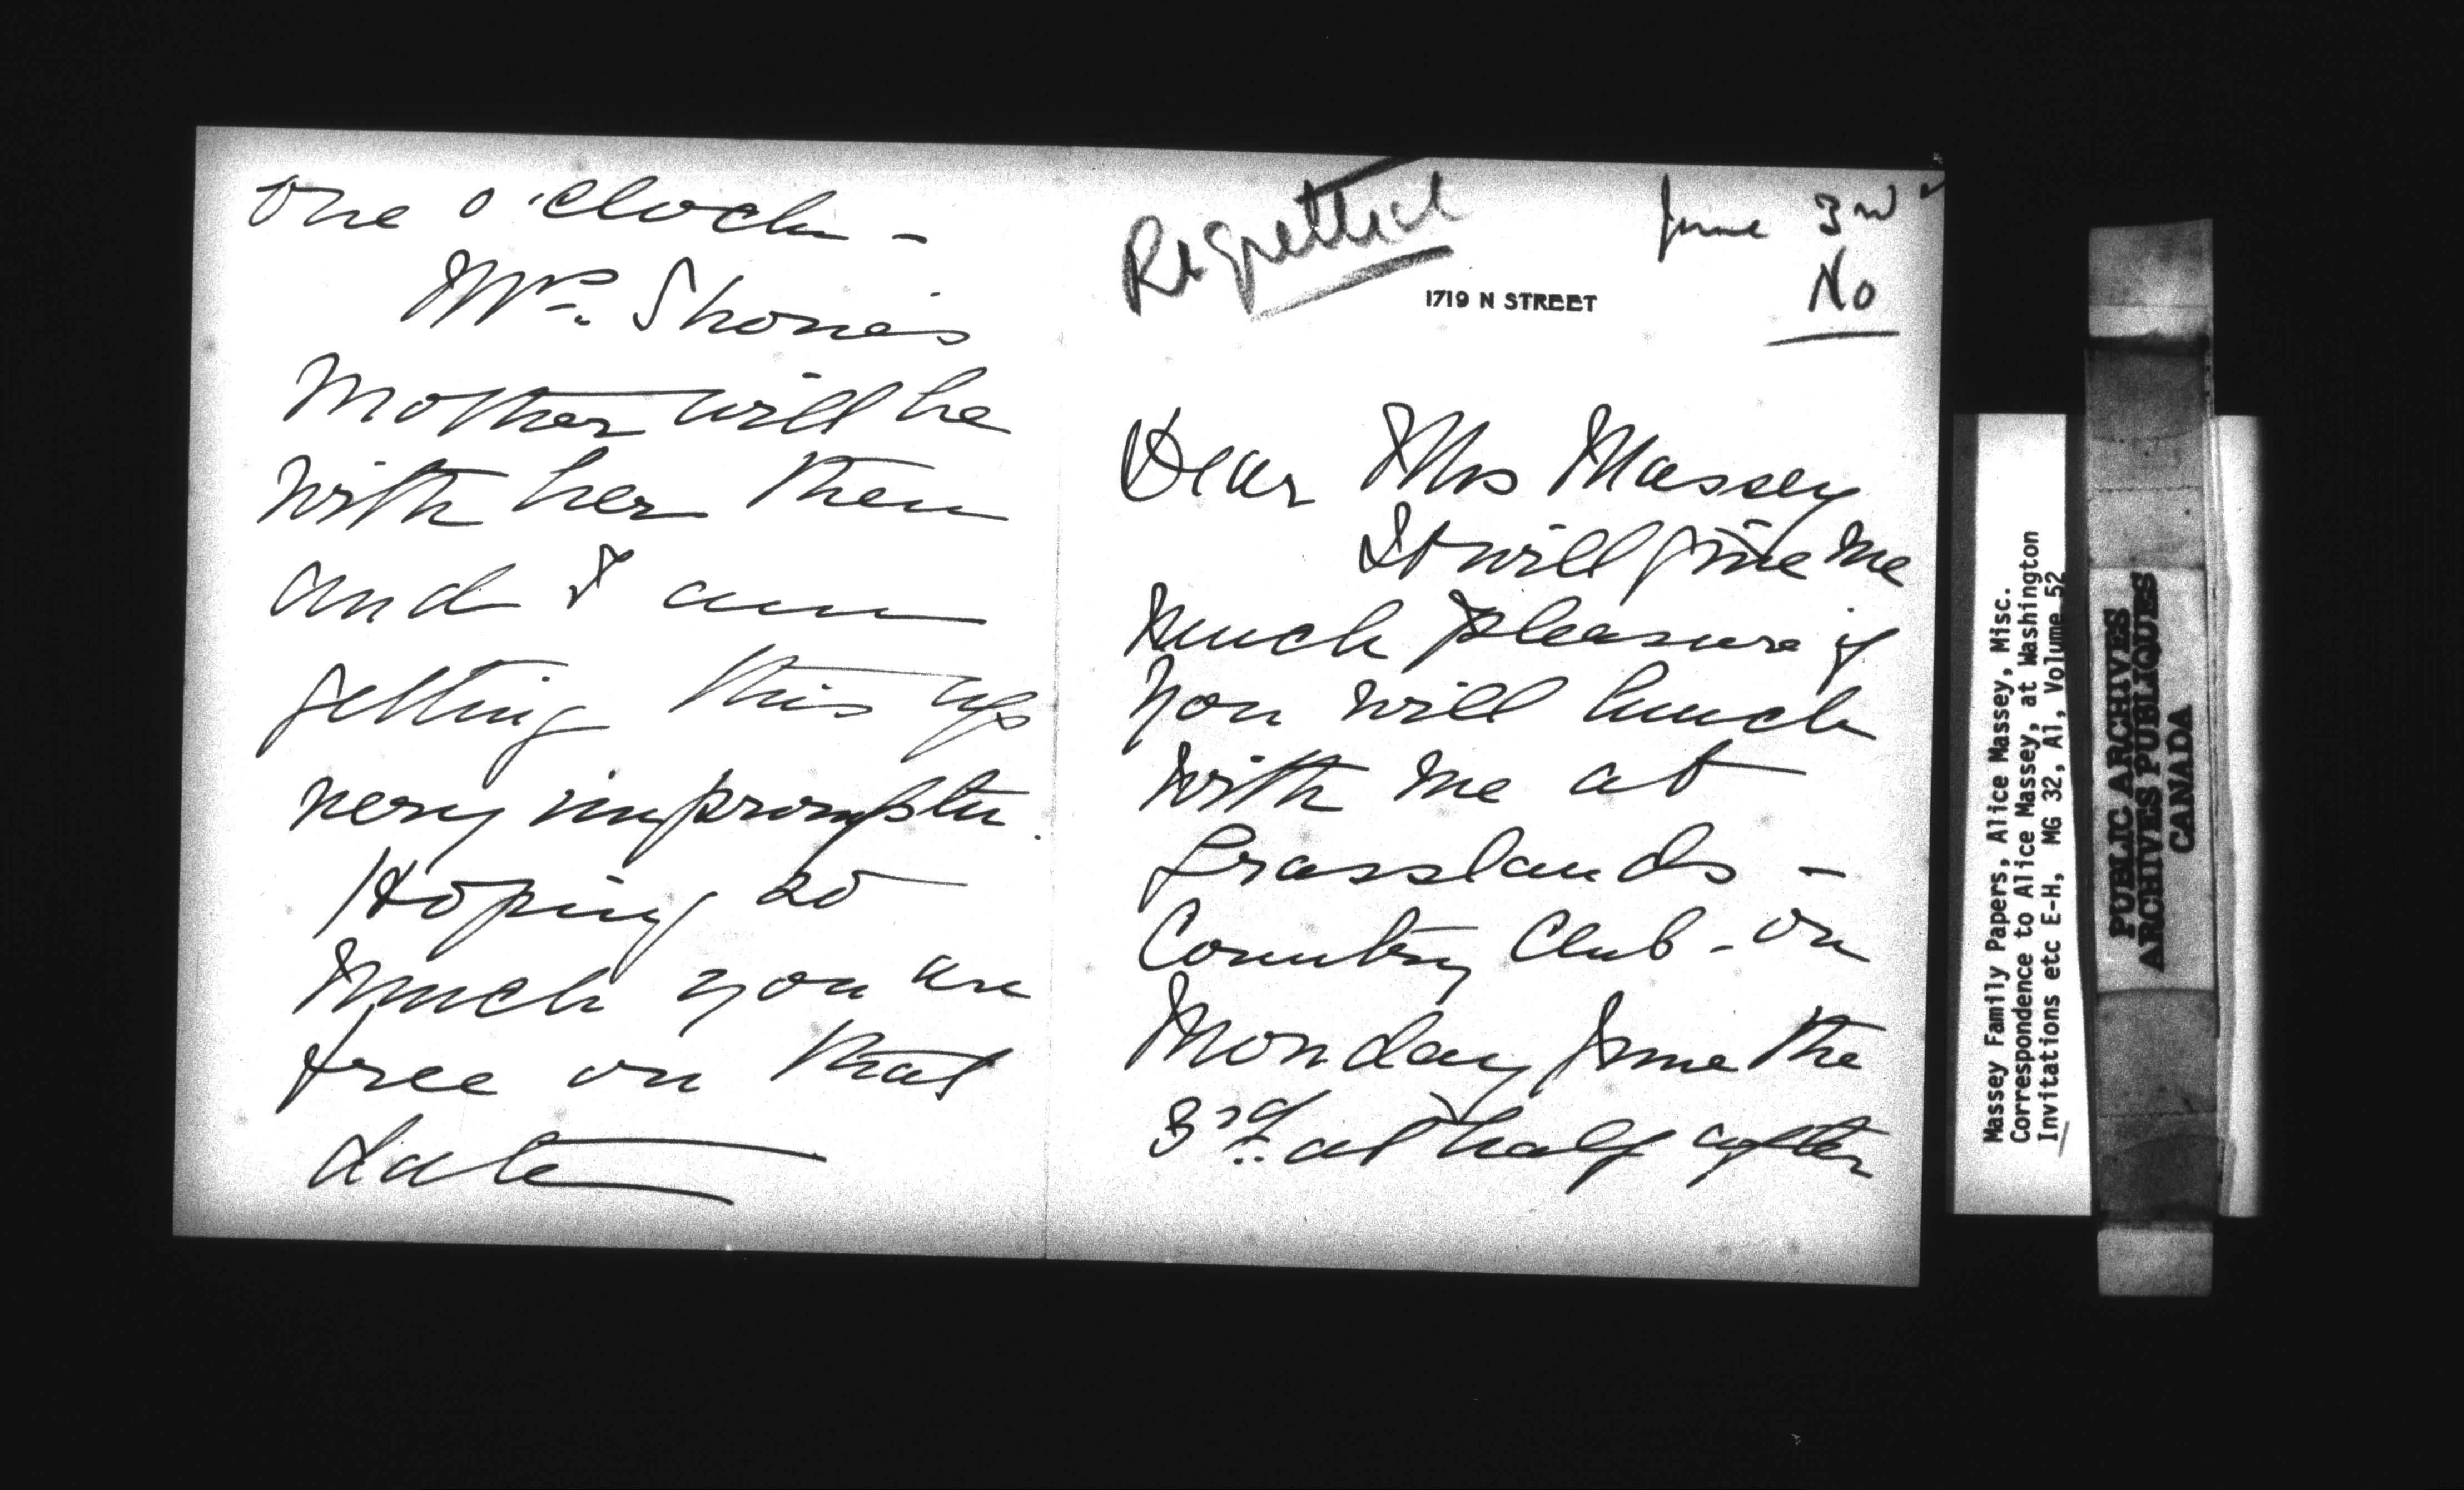 Regretted
June 3rd
No
1719 N STREET
Dear Mrs Massey
It will give me
much pleasure if
you will lunch
with me at
Grasslands -
Country Club - on
Monday June the
3rd. at half after
one o'clock -
Mrs. Shone's
Mother will be
with her then
and I am
getting this up
very impromptu.
Hoping so
much you are
free on that
date
Massey Family Papers, Alice Massey, Misc.
Correspondence to Alice Massey, at Washington
Invitations etc E-H, MG 32, A1, Volume 52
PUBLIC ARCHIVES
ARCHIVES PUBLIQUES
CANADA